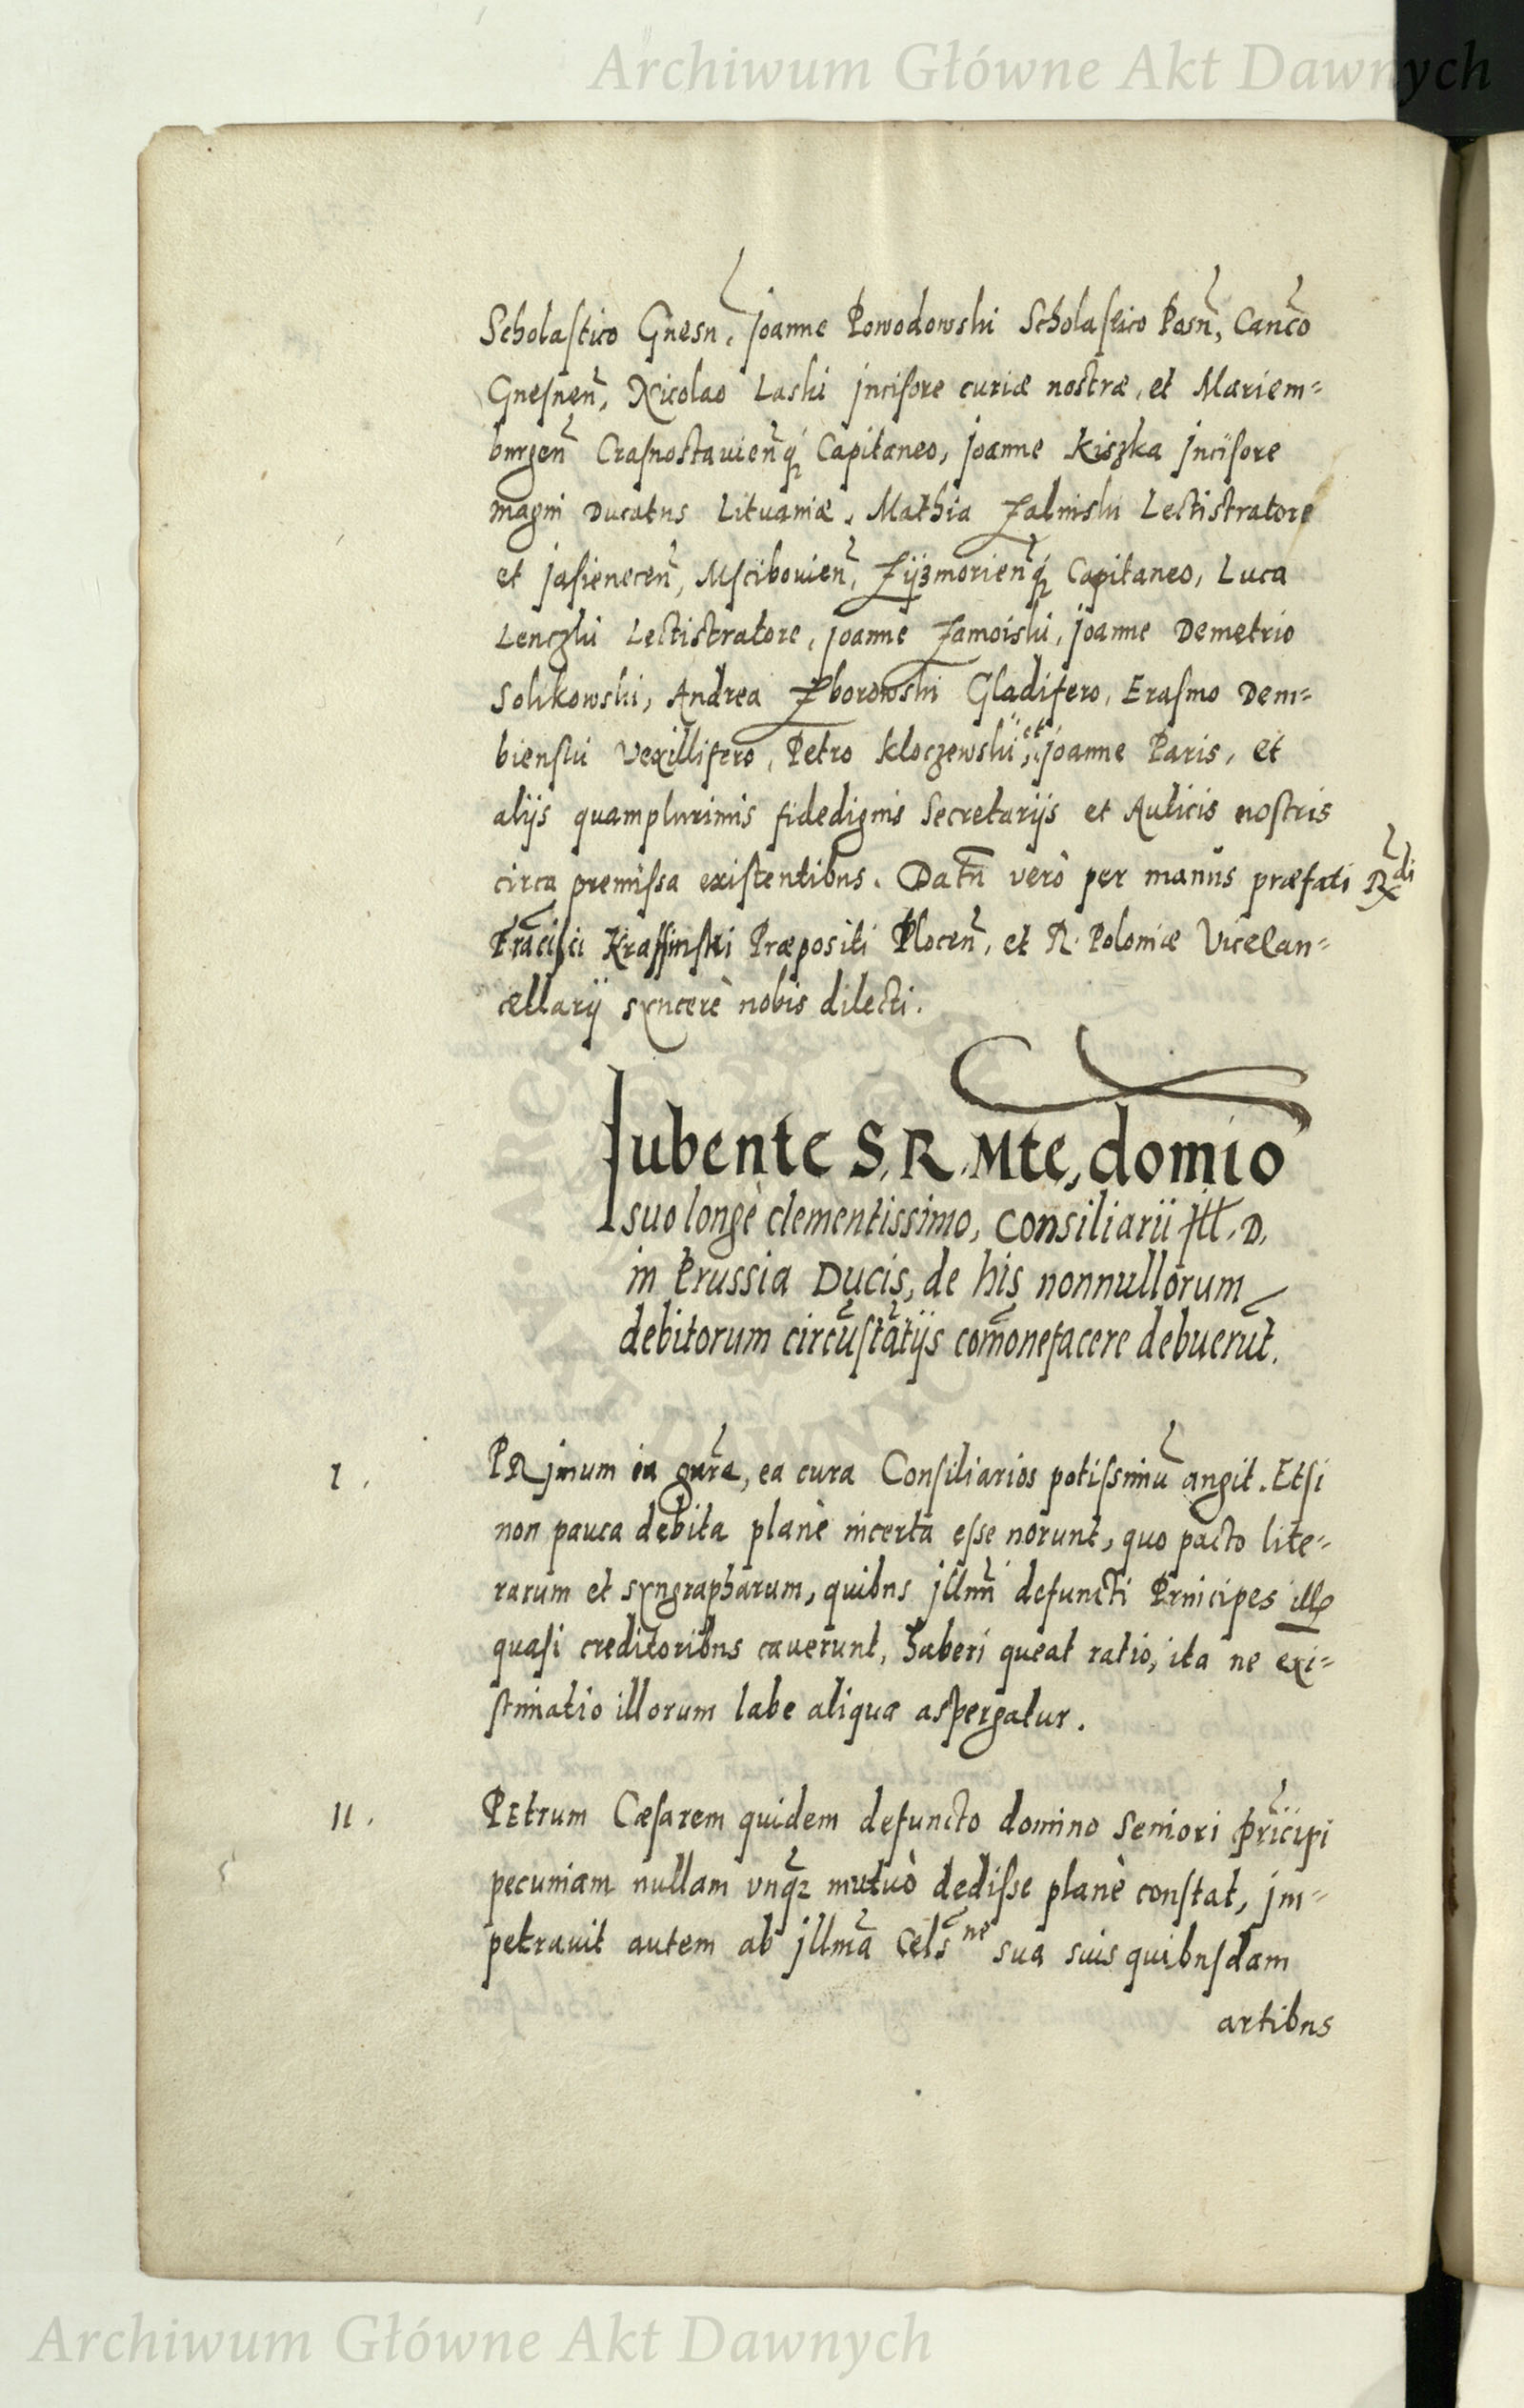 Archiwum Główne Akt Dawnych
Scholastico Gnesn̄, Joanne Powodowski Scholastico Posn̄, Canc̄o
Gnesnen̄, Nicolao Laski Incisore curiæ nostræ, et Mariem=
burgen̄ Crasnostauien̄q; Capitaneo, Joanne Kiszka Incisore
magni Ducatus Lituaniæ, Mathia Zalinski Lectistratore
et Jasienecen̄, Mscibouien̄, Zÿzmorien̄q; Capitaneo, Luca
Lenczki Lectistratore, Joanne Zamoiski, Joanne Demetrio
Solikowski, Andrea Zborowski Gladifero, Erasmo Dem=
bienski Vexillifero, Petro Kloczewski, et Joanne Paris, et
alijs quamplurimis fidedignis Secretarijs et Aulicis nostris
circa premissa existentibus. Datn̄ verò per manus præfati R̄di
Frācisci Krassinski Præpositi Plocen̄, et R. Poloniæ Vicecan=
cellarij syncerè nobis dilecti.
Iubente S. R. Mte, domio
suo longè clementissimo, Consiliarii Ill. D.
in Prussia Ducis, de his nonnullorum
debitorum circūstātijs com̄onefacere debuerūt.
I. PRimum ea cura Consiliarios potissimū angit. Etsi
non pauca debita planè incerta esse norunt, quo pacto lite=
rarum et syngrapharum, quibus Illmī defuncti Principes
quasi creditoribus cauerunt, haberi queat ratio, ita ne exi=
stimatio illorum labe aliqua aspergatur.
II. Petrum Cæsarem quidem defuncto domino Seniori Prīcipi
pecuniam nullam vnq̄; mutuò dedisse planè constat, im=
petrauit autem ab Illmā Cels̄ne sua suis quibusdam
artibus
Archiwum Główne Akt Dawnych